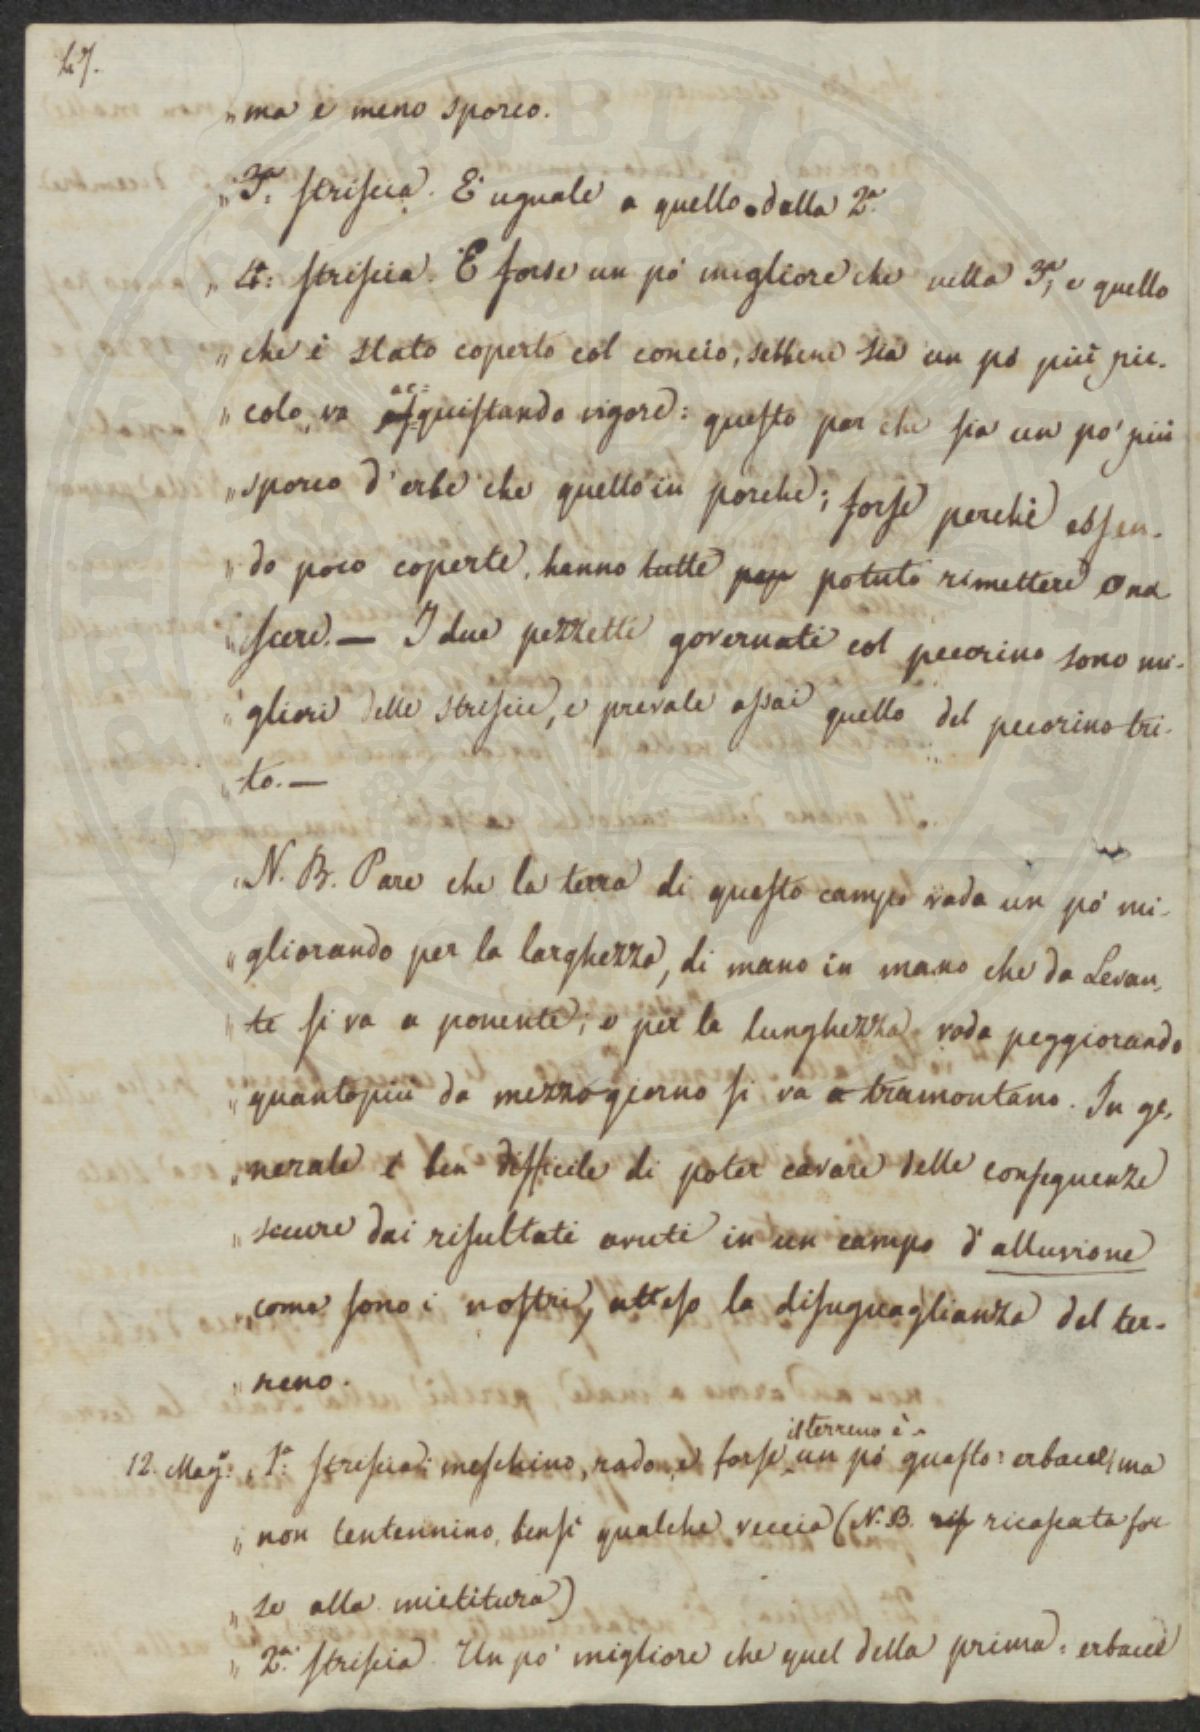 47.
„ ma e meno sporco.
„ 3ª: striscia. E' uguale a quello della 2ª.
„ 4ª: striscia. E forse un pò migliore che nella 3ª, e quello
„ che è stato coperto col concio, sebbene sia un pò più pic-
„ colo, va acquistando vigore: questo par che sia un po' più
„ sporco d'erbe che quello in porche; forse perchè essen-
„ do poco coperte, hanno tutte potuto rimettere o na
„ scere. — I due pezzetti governati col pecorino sono mi-
„ gliori delle striscie, e prevale assai quello del pecorino tri-
„ to. —
„ N. B. Pare che la terra di questo campo vada un pó mi-
„ gliorando per la larghezza, di mano in mano che da Levan-
„ te si va a ponente; e per la lunghezza vada peggiorando
„ quantopiù da mezzogiorno si va a tramontano. In ge-
„ nerale è ben difficile di poter cavare delle conseguenze
„ scure dai risultati avuti in un campo d'alluvione
„ come sono i nostri, atteso la disuguaglianza del ter-
„ reno.
il terreno è
12. Magº: „ 1ª: striscia: meschino, rado, e forse un pó guasto: erbacce, ma
„ non tentennino, bensì qualche veccia (N.B. ricascata for
„ se alla mietitura)
„ 2ª: striscia. Un pó migliore che quel della prima: erbacce